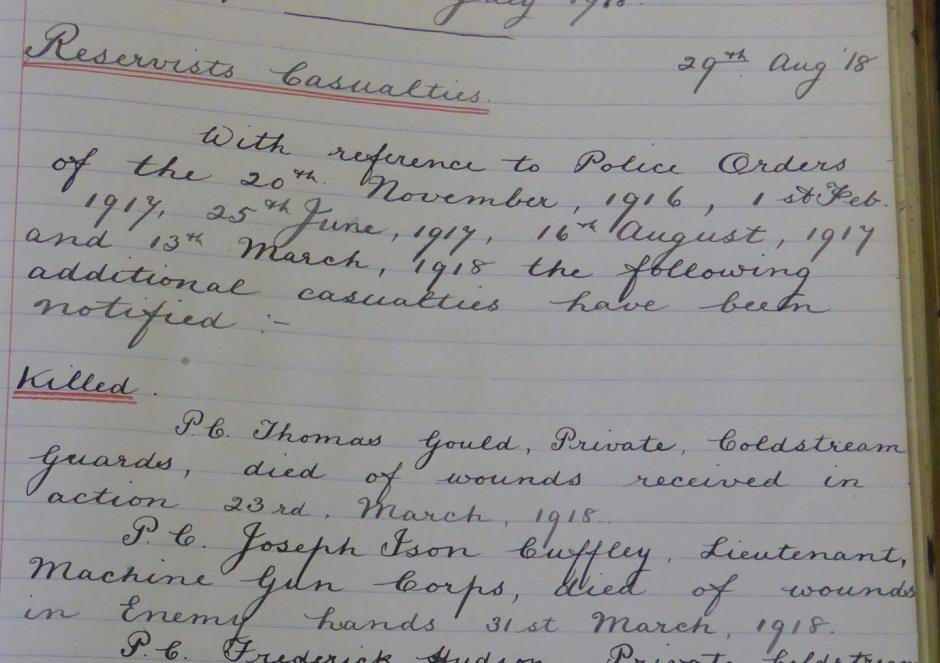 July 1918.
Reservists Casualties.
29th Aug '18
With reference to Police Orders
of the 20th November, 1916, 1st Feb.
1917, 25th June, 1917, 16th August, 1917
and 13th March, 1918 the following
additional casualties have been
notified :-
Killed.
P.C. Thomas Gould, Private, Coldstream
Guards, died of wounds received in
action 23rd. March, 1918.
P.C. Joseph Ison Cuffley, Lieutenant,
Machine Gun Corps, died of wounds
in Enemy hands 31st March, 1918.
P.C. Frederick Hudson Private Coldstream